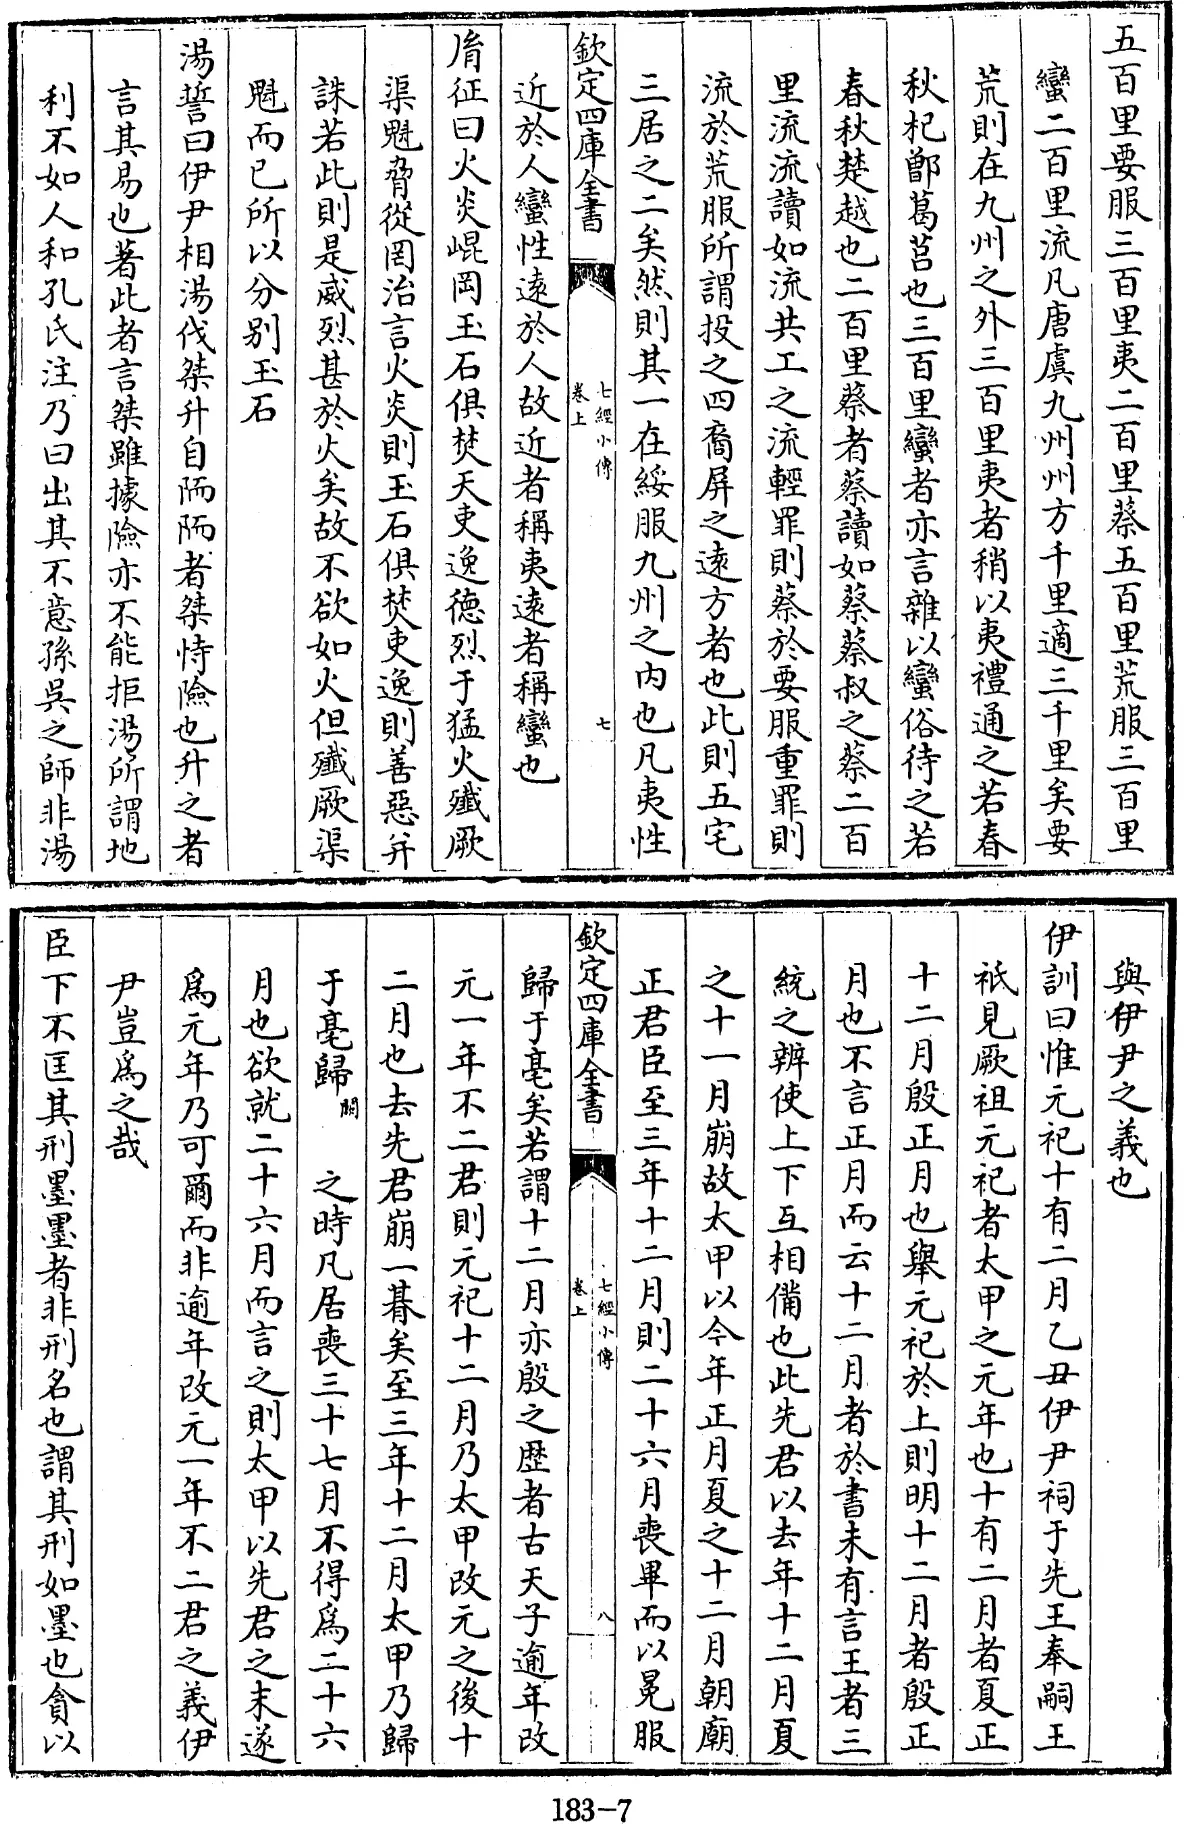 五百里要服三百里夷二百里蔡五百里荒服三百里
蠻二百里流凡唐虞九州州方千里適三千里矣要
荒則在九州之外三百里夷者稍以夷禮通之若春
秋杞鄫葛莒也三百里蠻者亦言雜以蠻俗待之若
春秋楚越也二百里蔡者蔡讀如蔡蔡叔之蔡二百
里流流讀如流共工之流輕罪則蔡於要服重罪則
流於荒服所謂投之四裔屏之遠方者也此則五宅
三居之二矣然則其一在綏服九州之内也凡夷性
欽定四庫全書
七經小傳
卷上
七
近於人蠻性遠於人故近者稱夷遠者稱蠻也
胤征曰火炎崐岡玉石俱焚天吏逸德烈于猛火殲厥
渠魁脅從罔治言火炎則玉石俱焚吏逸則善惡并
誅若此則是威烈甚於火矣故不欲如火但殲厥渠
魁而已所以分别玉石
湯誓曰伊尹相湯伐桀升自陑陑者桀恃險也升之者
言其易也著此者言桀雖據險亦不能拒湯所謂地
利不如人和孔氏注乃曰出其不意孫吳之師非湯
與伊尹之義也
伊訓曰惟元祀十有二月乙丑伊尹祠于先王奉嗣王
祇見厥祖元祀者太甲之元年也十有二月者夏正
十二月殷正月也舉元祀於上則明十二月者殷正
月也不言正月而云十二月者於書未有言王者三
統之辨使上下互相備也此先君以去年十二月夏
之十一月崩故太甲以今年正月夏之十二月朝廟
正君臣至三年十二月則二十六月喪畢而以冕服
欽定四庫全書
七經小傳
卷上
八
歸于亳矣若謂十二月亦殷之歷者古天子逾年改
元一年不二君則元祀十二月乃太甲改元之後十
二月也去先君崩一朞矣至三年十二月太甲乃歸
于亳歸闕之時凡居喪三十七月不得爲二十六
月也欲就二十六月而言之則太甲以先君之末遂
爲元年乃可爾而非逾年改元一年不二君之義伊
尹豈爲之哉
臣下不匡其刑墨墨者非刑名也謂其刑如墨也貪以
183-7